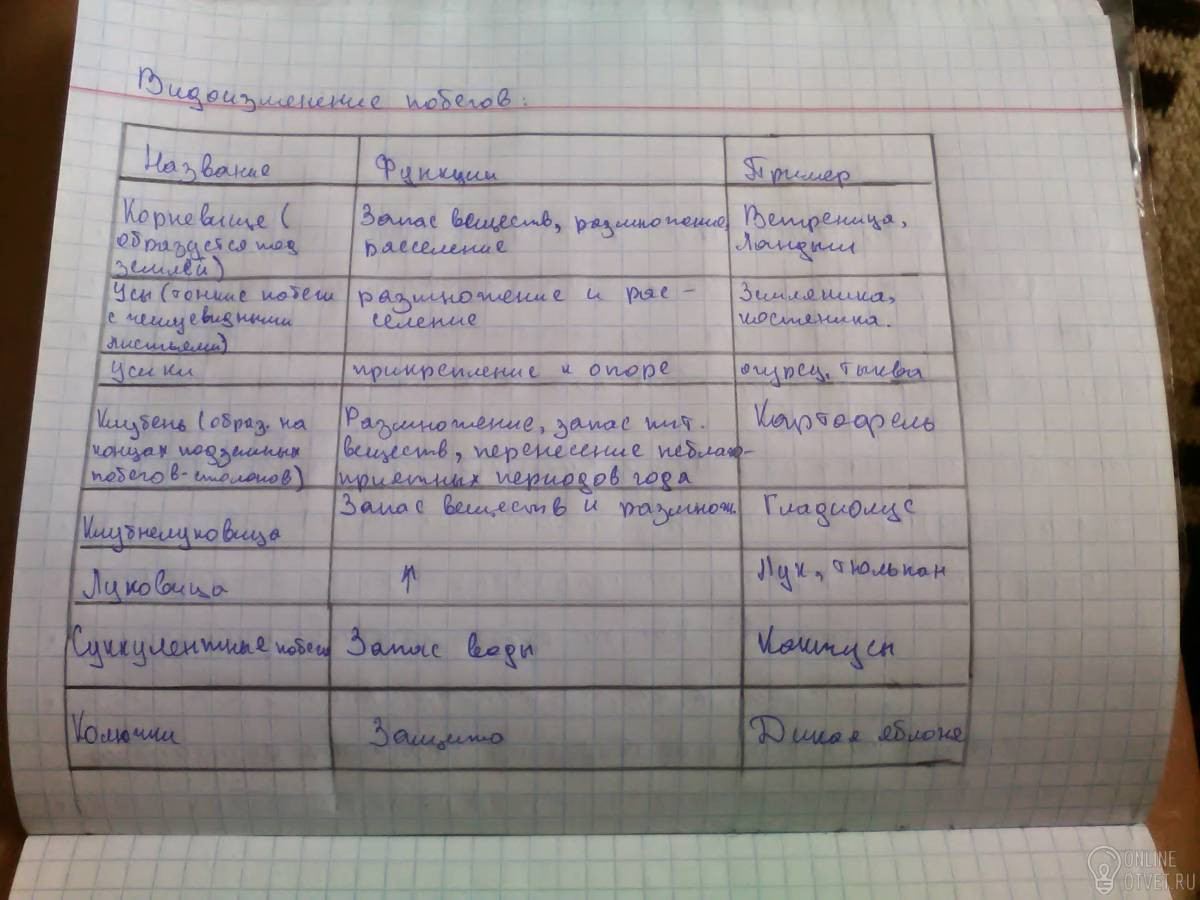 Видоизменение побегов:
Название
Функции
Пример
Корневище (
образуется под
землей)
Запас веществ, размножение,
расселение
Ветреница,
Ландыш
Усы (тонкие побеги
с чешуевидными
листьями)
размножение и рас-
селение
Земляника,
костеника.
Усики
прикрепление к опоре
огурец, тыква
Клубень (образ. на
концах подземных
побегов-столонов)
Размножение, запас пит.
веществ, перенесение неблаго-
приятных периодов года
Картофель
Клубнелуковица
Запас веществ и размнож.
Гладиолус
Луковица
↑
Лук, тюльпан
Суккулентные побеги
Запас воды
Кактусы
Колючки
Защита
Дикая яблоня
ONLINE
OTVET.RU